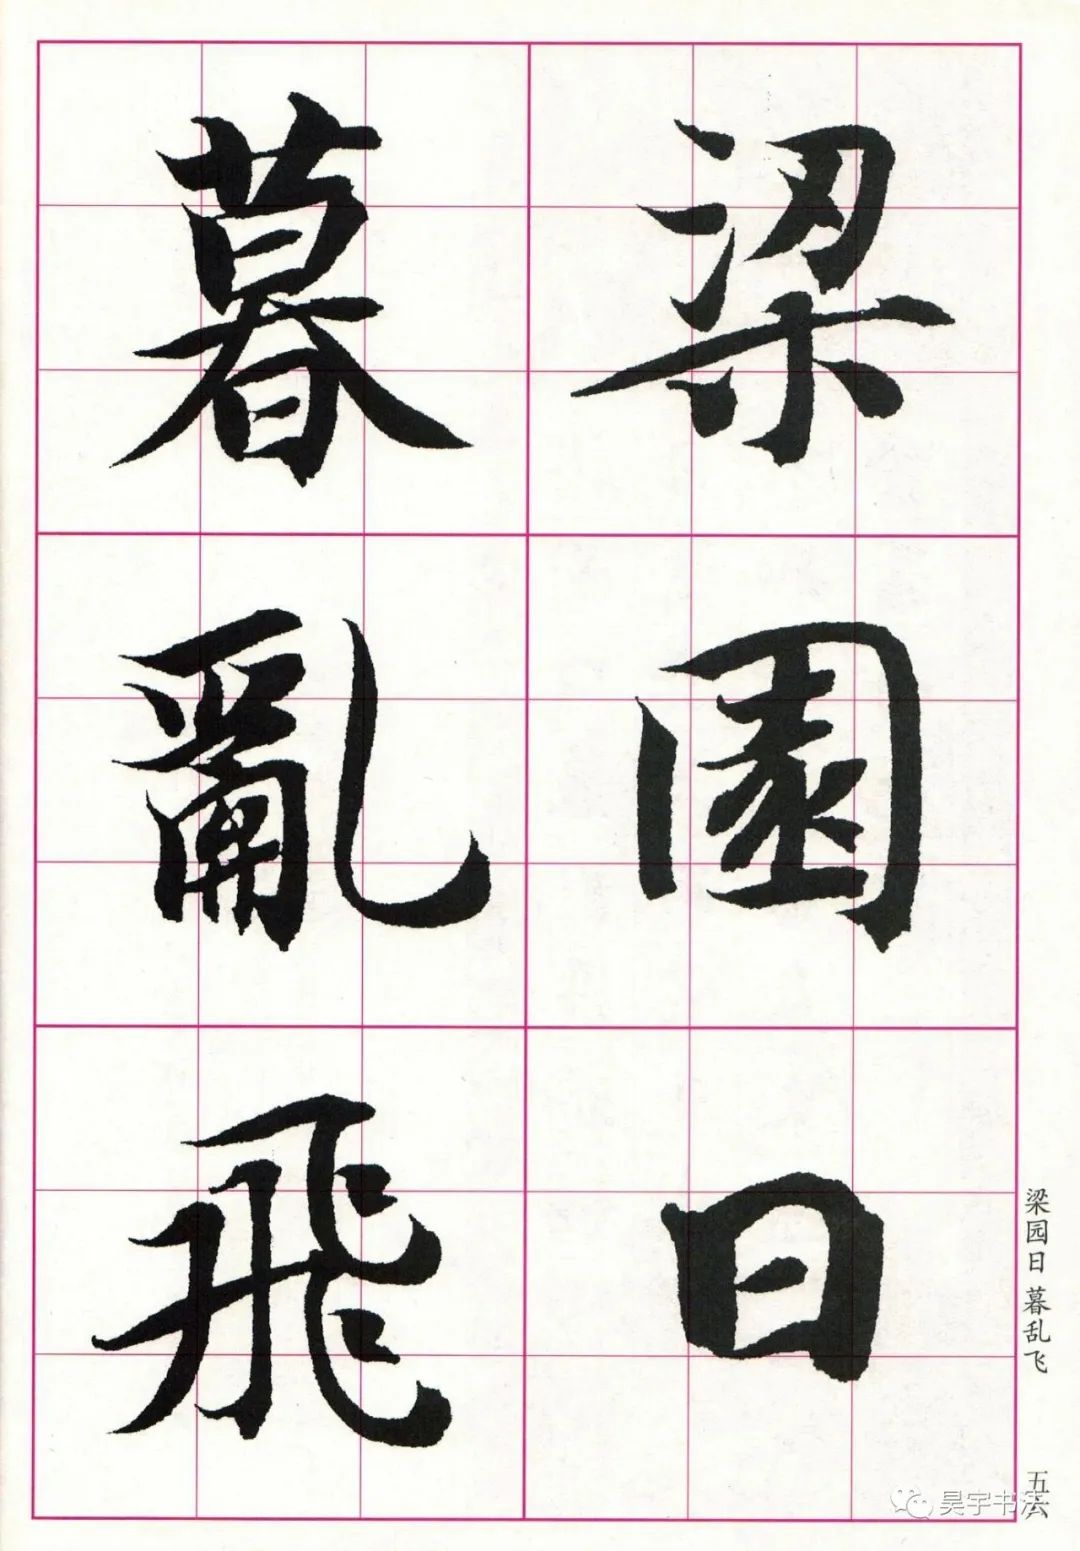 梁園日
暮亂飛
梁园日 暮乱飞
五六
昊宇书法